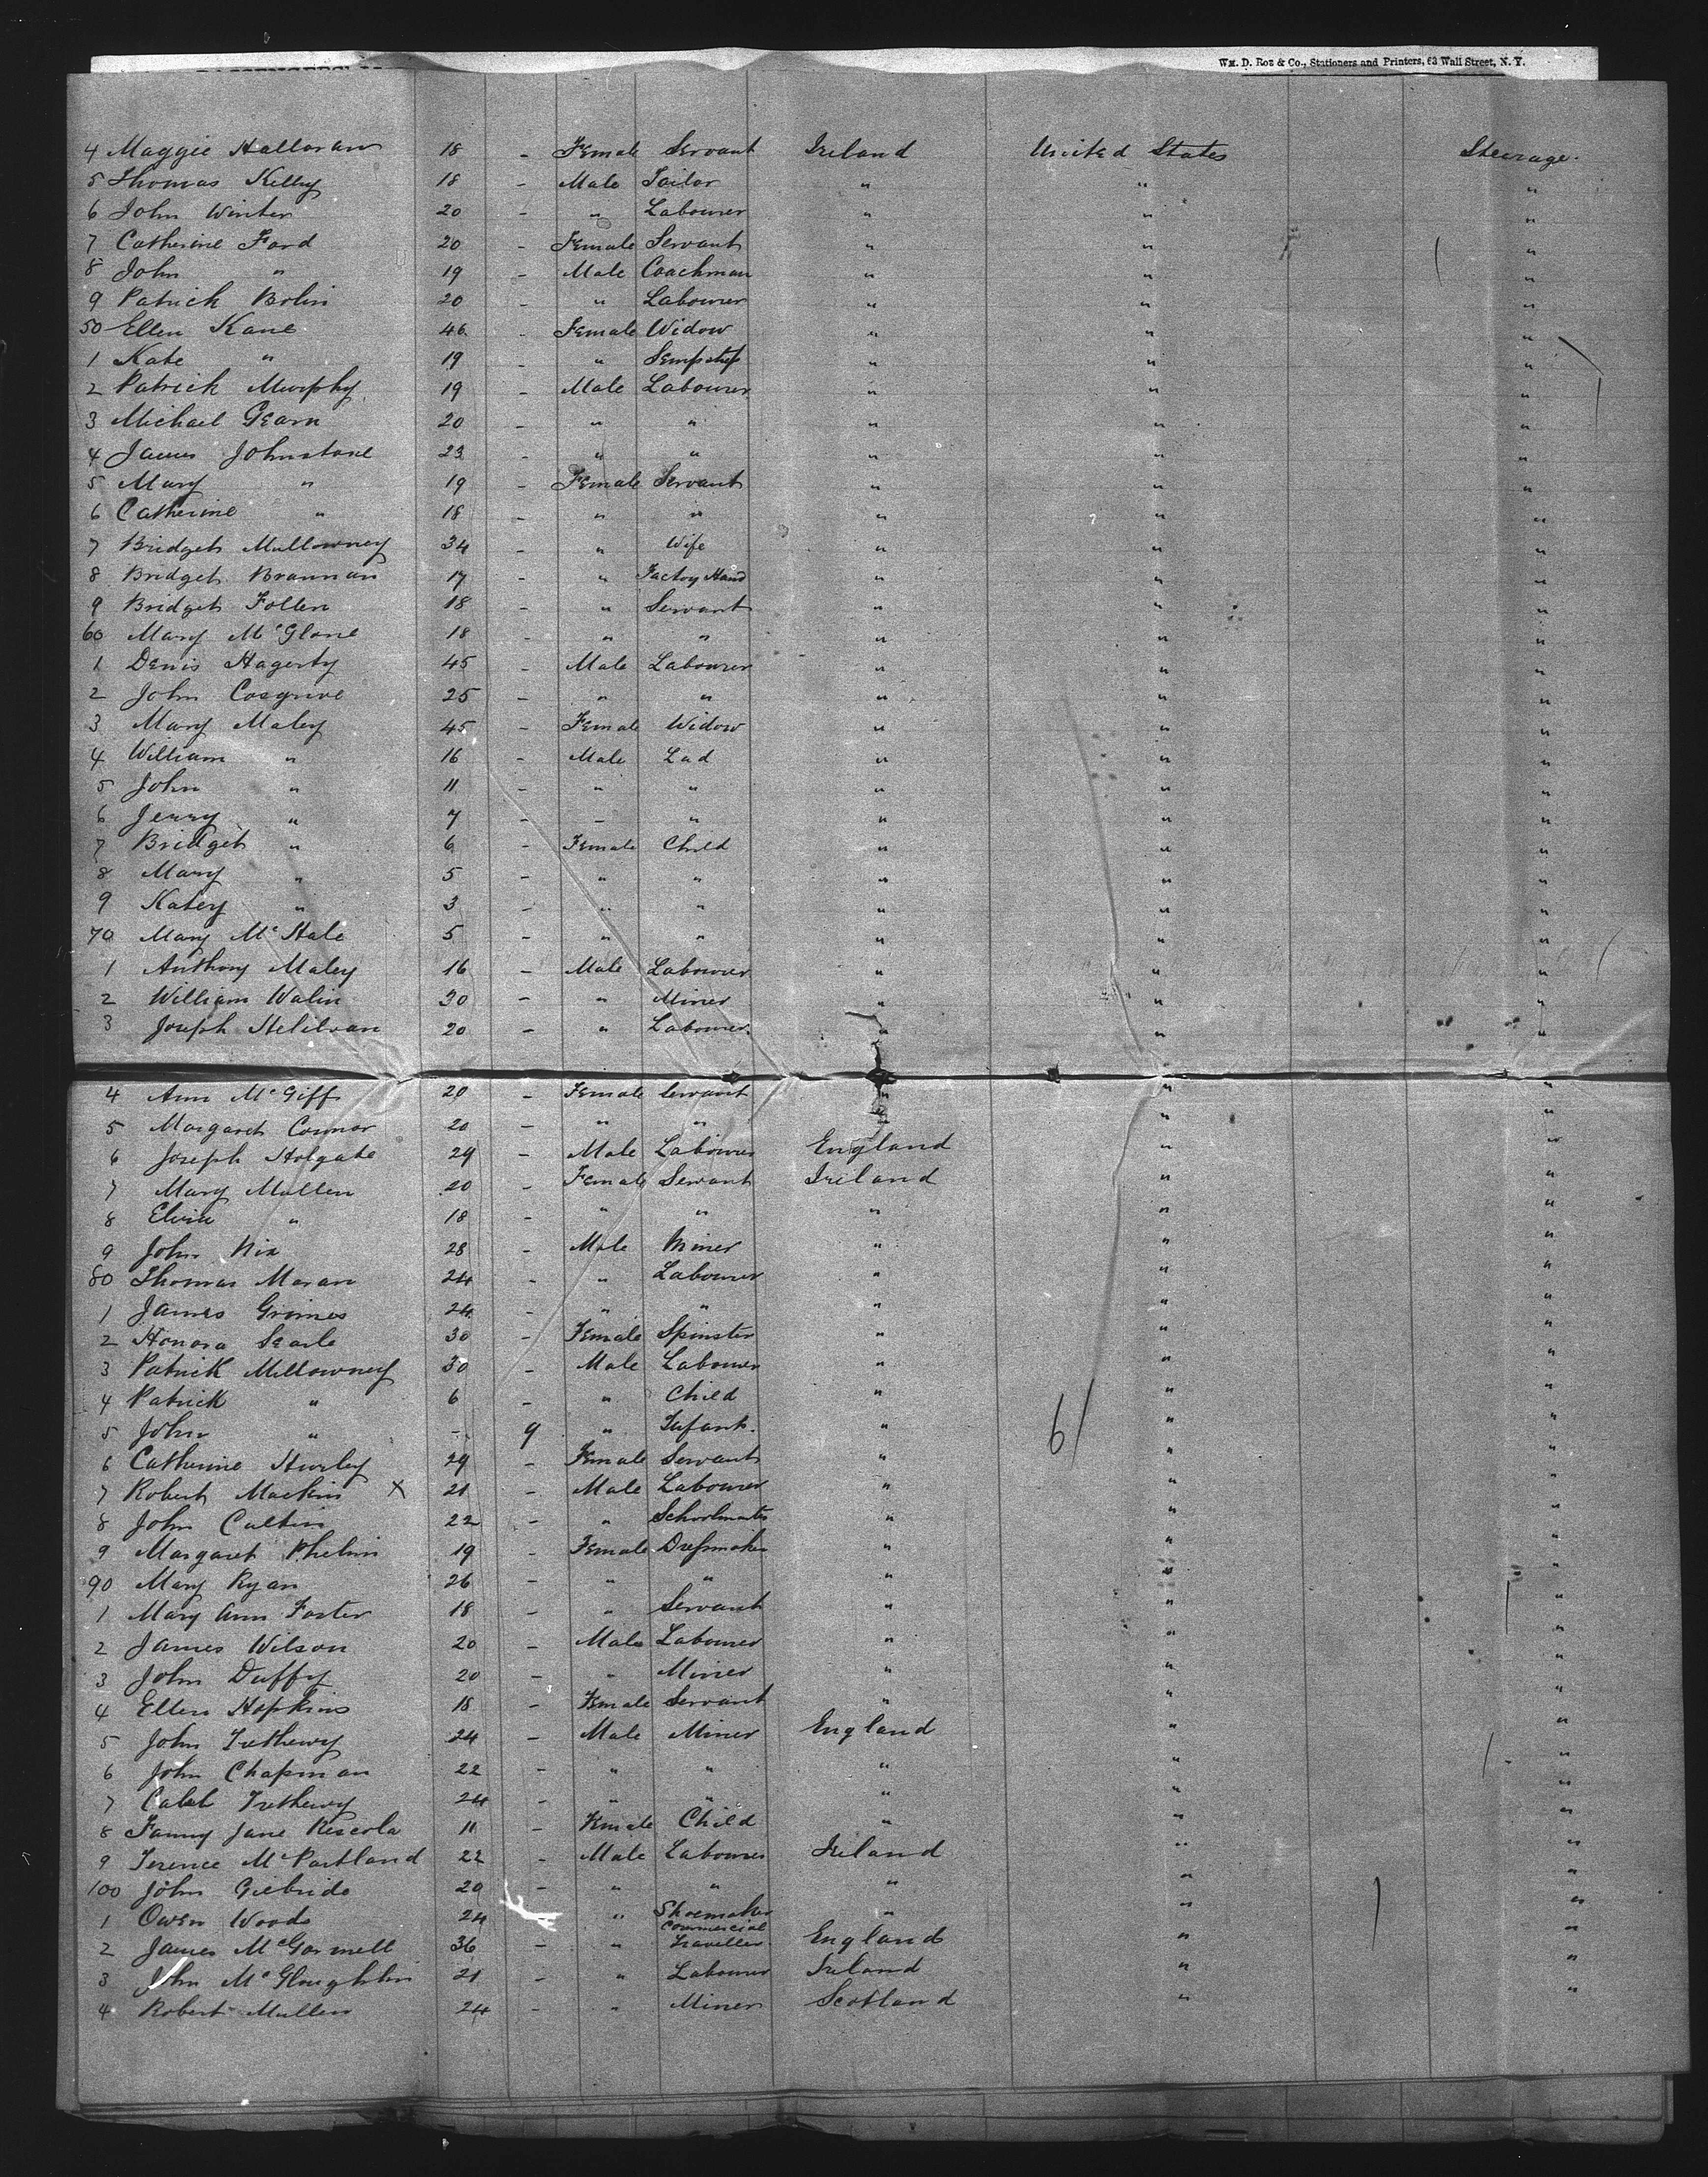 Wm. D. Roe & Co., Stationers and Printers, 63 Wall Street, N. Y.
4 Maggie Halloran 18 - Female Servant Ireland United States Steerage.
5 Thomas Kelly 18 - Male Tailor " " "
6 John Winter 20 - " Labourer " " "
7 Catherine Ford 20 - Female Servant " " "
8 John " 19 - Male Coachman " " "
9 Patrick Bolin 20 - " Labourer " " "
50 Ellen Kane 46 - Female Widow " " "
1 Kate " 19 - " Sempstress " " "
2 Patrick Murphy 19 - Male Labourer " " "
3 Michael Gearn 20 - " " " " "
4 James Johnstone 23 - " " " " "
5 Mary " 19 - Female Servant " " "
6 Catherine " 18 - " " " " "
7 Bridget Mullowney 34 - " Wife " " "
8 Bridget Brannan 17 - " Factory Hand " " "
9 Bridget Follen 18 - " Servant " " "
60 Mary McGlone 18 - " " " " "
1 Denis Hagerty 45 - Male Labourer " " "
2 John Cosgrive 25 - " " " " "
3 Mary Maley 45 - Female Widow " " "
4 William " 16 - Male Lad " " "
5 John " 11 - " " " " "
6 Jerry " 7 - " " " "
7 Bridget " 6 - Female Child " " "
8 Mary " 5 - " " " " "
9 Katey " 3 - " " " " "
70 Mary McHale 5 - " " " " "
1 Anthony Maley 16 - Male Labourer " " "
2 William Walin 30 - " Miner " " "
3 Joseph 20 - " Labourer " " "
4 Ann McGiff 20 - Female Servant " " "
5 Margaret Connor 20 - " " " " "
6 Joseph Holgate 29 - Male Labourer England " "
7 Mary Mullen 20 - Female Servant Ireland " "
8 " 18 - " " " " "
9 John Nix 28 - Male Miner " " "
80 Thomas Moran 24 - " Labourer " " "
1 James Grimes 24 - " " " " "
2 Honora Searle 30 - Female Spinster " " "
3 Patrick Millowney 30 - Male Labourer " " "
4 Patrick " 6 - " Child " " "
5 John " - 9 " Infant. " 6/ " "
6 Catherine Hurley 29 - Female Servant " " "
7 Robert Mackin X 21 - Male Labourer " " "
8 John Caltin 22 - " Schoolmaster " " "
9 Margaret Phelin 19 - Female Dressmaker " " "
90 Mary Ryan 26 - " " " " "
1 Mary Ann Foster 18 - " Servant " " "
2 James Wilson 20 - Male Labourer " " "
3 John Duffy 20 - " Miner " " "
4 Ellen Hopkins 18 - Female Servant " " "
5 John Trethewy 24 - Male Miner England " "
6 John Chapman 22 - " " " " "
7 Caleb Trethewy 24 - " " " " "
8 Fanny Jane Rescola 11 - Female Child " " "
9 Terence McPartland 22 - Male Labourer Ireland " "
100 John Gilbride 20 - " " " " "
1 Owen Woods 24 - " Shoemaker " " "
2 James McGormell 36 - " Commercial Traveller England " "
3 John McGloughlin 21 - " Labourer Ireland " "
4 Robert Mullen 24 - " Miner Scotland " "